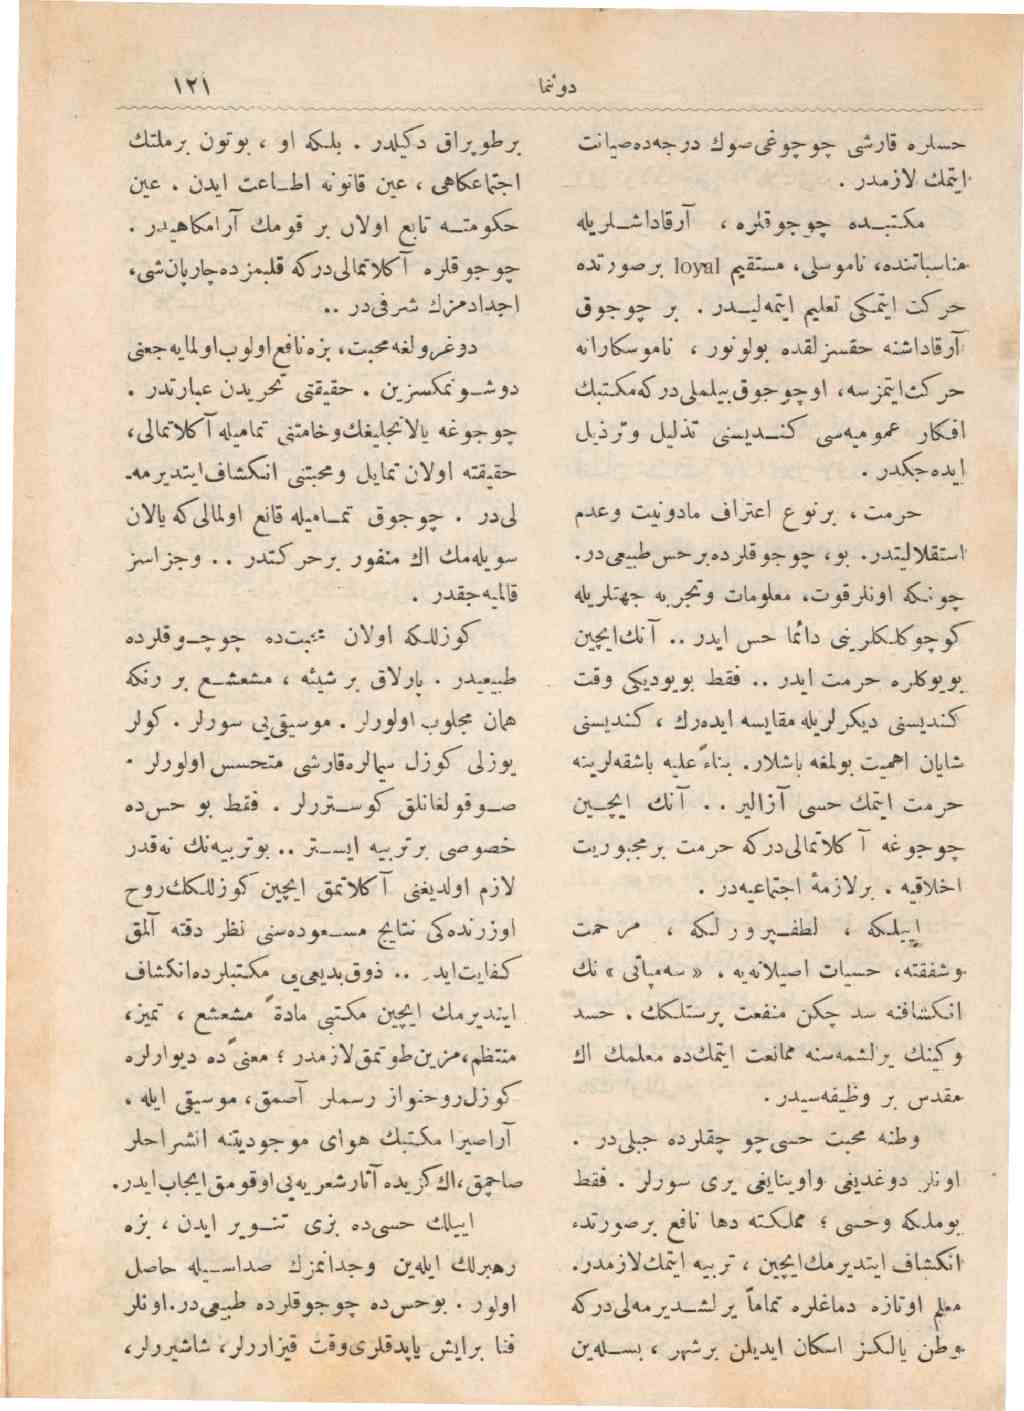 دوننما
١٢١
حسلره قارشی چوجوغی صوك درجه‌ده صیانت
ایتمك لازمدر .
مكتبـده چوجوقلره ، آرقاداشـلریله
مناسباتنده، ناموسلی، مستقیم loyal بر صورتده
حركت ایتمكی تعلیم ایتمه‌لیـدر . بر چوجوق
آرقاداشنه حقسزلقده بولونور ، ناموسكارانه
حركت ایتمزسه، او چوجوق بیلملی‌دركه مكتبك
افكار عمومیه‌سی كنـدیسنی تذلیل وترذیل
ایده‌جكدر .
حرمت، برنوع اعتراف مادونیت وعدم
استقلالیتدر. بو، چوجوقلرده برحس طبیعی‌در.
چونكه اونلر قوت، معلومات وتجربه جهتلریله
كوچوكلكلرینی دائما حس ایدر .. آنك ایچین
بویوكلره حرمت ایدر .. فقط بویودیكی وقت
كندیسنی دیكرلریله مقایسه ایده‌رك ، كندیسنی
شایان اهمیت بولمغه باشلار. بناءً علیه باشقه‌لرینه
حرمت ایتمك حسی آزالیر .. آنك ایچـین
چوجوغه آكلاتمالی‌دركه حرمت بر مجبوریت
اخلاقیه . برلازمهٔ اجتماعیه‌در .
اییلكه ، لطفـپرورلكه ، مرحمت
وشفقته، حسیات اصیلانه‌یه . «سه‌مپاتی» نك
انكشافنه سد چكن منفعت پرستلكك . حسد
وكینك یرلشمه‌سنه ممانعت ایتمك‌ده معلمك اك
مقدس بر وظیفه‌سیدر.
وطنه محبت حسی چوجقلرده جبلی‌در .
اونلر دوغدیغی واوینایغی یری سورلر . فقط
بوملكه وحسی ؛ مملكته دها نافع برصورتده
انكشاف ایتدیرمك ایچین ، تربیه ایتمك لازمدر.
معلم اوتازه دماغلره تماماً یرلشـدیرمه‌لی‌دركه
وطن یالكز اسكان ایدیلن برشهر ، بسـله‌ین
برطوپراق دكیلدر . بلكه او ، بوتون برملتك
اجتماعكاهی ، عین قانونه اطـاعت ایدن . عین
حكومتـه تابع اولان بر قومك آرامكاهیدر .
چوجوقلره آكلاتمالی‌دركه قلبمزده چارپان شی،
اجدادمزك شرفی‌در ..
دوغرولغه محبت، بزه نافع اولوب اولمایه‌جغنی
دوشـونمكسزین . حقیقتی تحریدن عبارتدر .
چوجوغه یالانجلیغك وخامتنی تمامیله آكلاتمالی،
حقیقته اولان تمایل ومحبتنی انكشاف ایتدیرمه-
لی‌در . چوجوق تمـامیله قانع اولمالی‌كه یالان
سویله‌مك اك منفور برحركتدر .. وجزاسز
قالمیه‌جقدر .
كوزللكه اولان محبت‌ده چوجـوقلرده
طبیعیدر . پارلاق بر شیئه ، مشعشـع بر رنكه
همان مجلوب اولورلر . موسیقی‌یی سورلر . كولر
یوزلی كوزل سیمالره قارشی متحسس اولورلر .
صـوقولغانلق كوسـتررلر . فقط بو حس‌ده
خصوصی برتربیه ایسـتر .. بوتربیه‌نك نه‌قدر
لازم اولدیغنی آكلاتمق ایچین كوزللكك روح
اوزرنده‌كی نتایج مسـعوده‌سنی نظر دقته آلمق
كفایت ایدر .. ذوق بدیعی‌یی مكتبلرده انكشاف
ایتدیرمك ایچین مكتبی مادةً مشعشع ، تمیز،
منتظم، مزین طوتمق لازمدر ؛ معنیً ده دیوارلره
كوزل روحنواز رسملر آصمق، موسیقی ایله ،
آراصیرا مكتبك هوای موجودیتنه انشراحلر
صاچمق، اك كزیده آثار شعریه‌یی اوقومق ایجاب ایدر.
اییلك حسی‌ده بزی تنـویر ایدن ، بزه
رهبرلك ایله‌ین وجدانمزك صداسـیله حاصل
اولور . بوحس‌ده چوجوقلرده طبیعی‌در. اونلر
فنا برایش یاپدقلری وقت قیزاررلر، شاشیررلر،